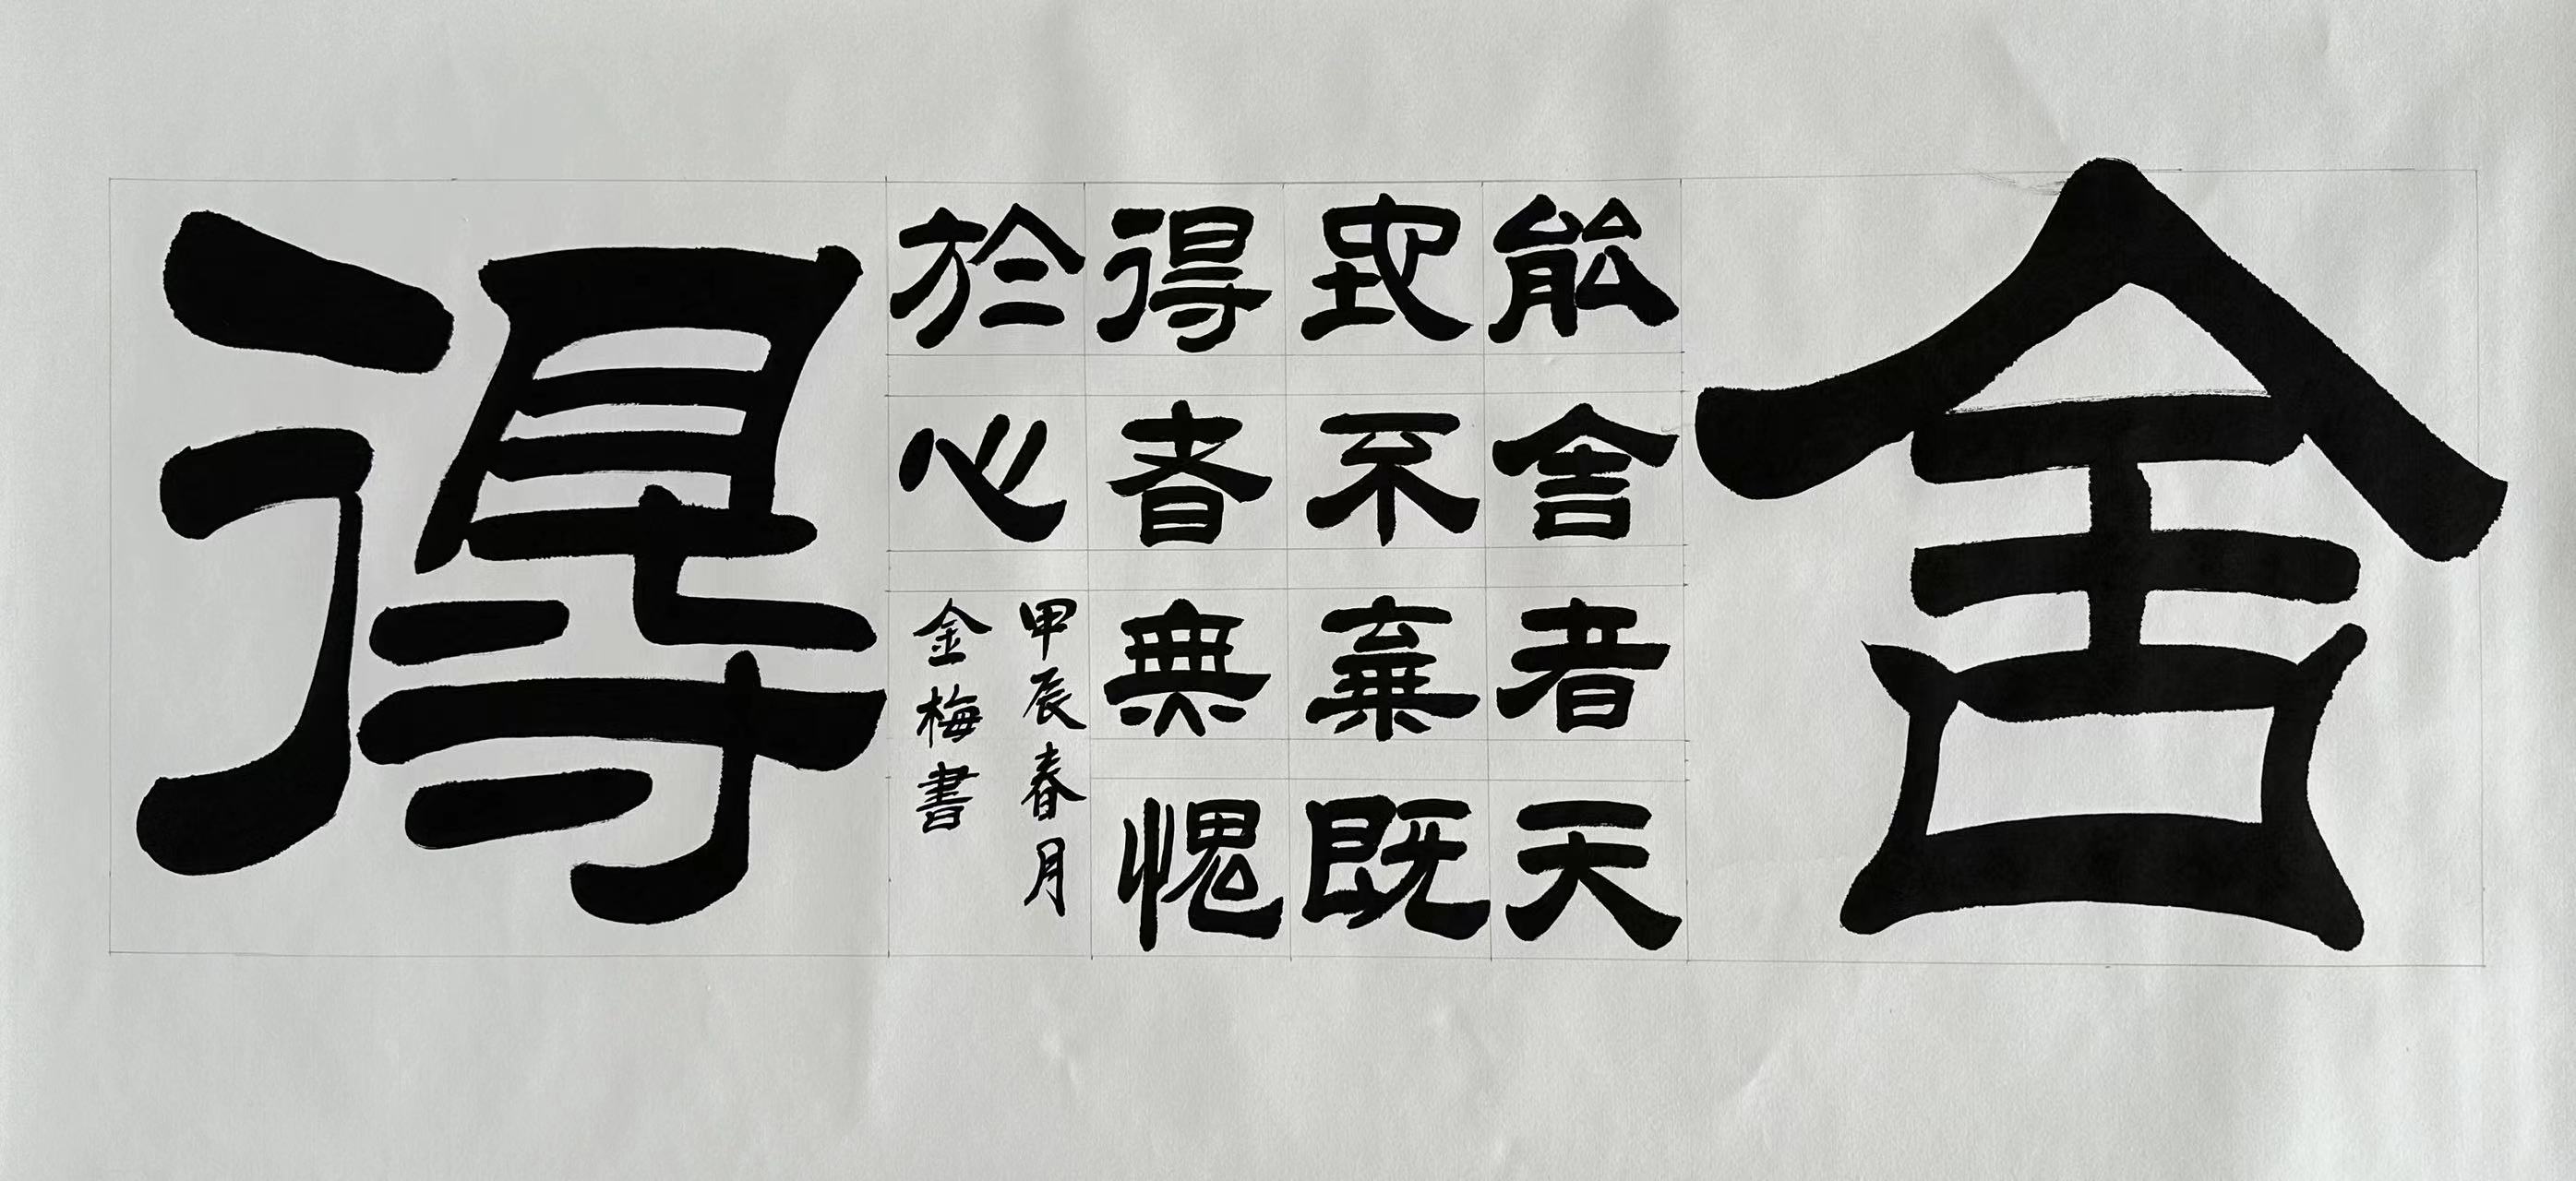 舍
能舍者天
地不棄既
得者無愧
於心
甲辰春月
金梅書
得